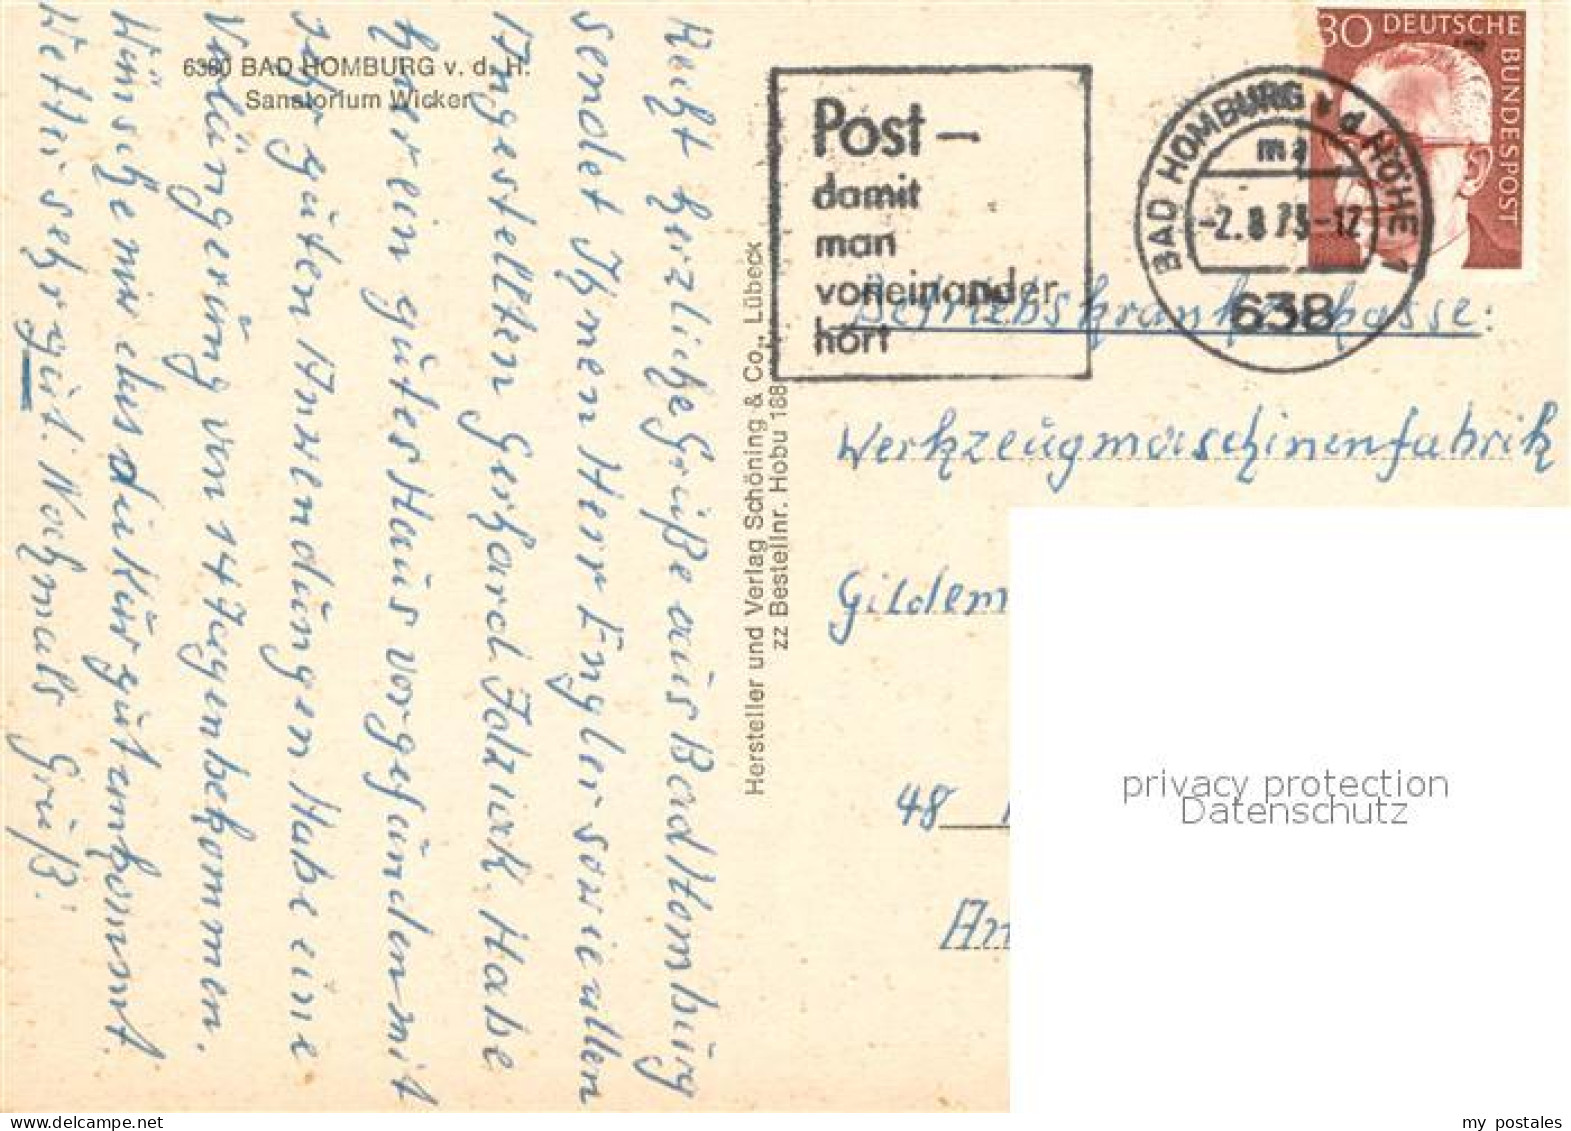 6380 BAD HOMBURG v. d. H.
Sanatorium Wicker
Recht herzliche Grüße aus Bad Homburg
sendet Ihnen Herr Engler sowie allen
Angestellten Gerhard. Habe
hier ein gutes Haus vorgefunden mit
sehr guten Anwendungen Habe eine
Verlängerung von 14 Tagen bekommen.
Wünsche mir das die Kur gut ankommt.
Wetter sehr gut. Nochmals Gruß!
Hersteller und Verlag Schöning & Co., Lübeck
zz Bestellnr. Hobu 188
Post –
damit
man
voneinander
hört
BAD HOMBURG v d HÖHE 1
ma
-2.8.73-12
638
80 DEUTSCHE BUNDESPOST
Betriebskrankenkasse:
Werkzeugmaschinenfabrik
Gildem
48
An
privacy protection
Datenschutz
www.delcampe.net
my_postales